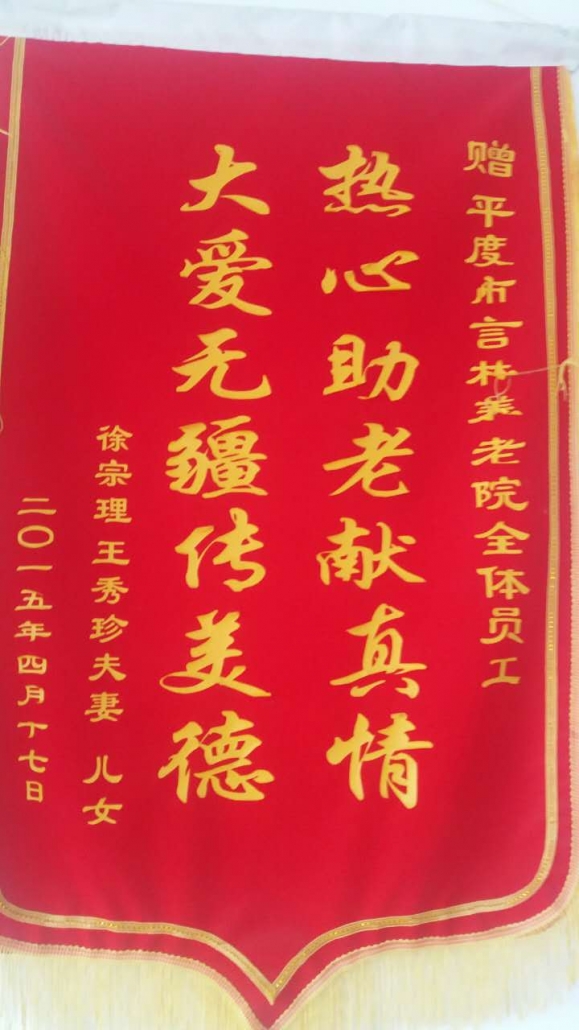 赠 平度市言林养老院全体员工
热心助老献真情
大爱无疆传美德
徐宗理 王秀珍夫妻 儿女
二〇一五年四月丁七日